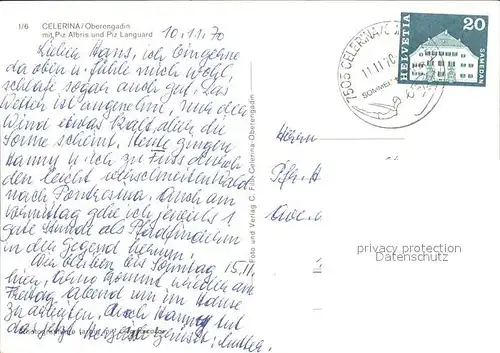 1/6 CELERINA/Oberengadin
mit Piz Albris und Piz Languard
10.11.70
Lieber Hans, ich bin gerne
da oben u. fühle mich wohl,
schlafe sogar auch gut. Das
Wetter ist angenehm, nur der
Wind etwas kalt, aber die
Sonne scheint. Heute gingen
Hanny u. ich zu Fuss durch
den leicht verschneiten Wald
nach Pontresina. Auch am
Vormittag gehe ich jeweils 1
gute Stunde als Pfadfinderin
in der Gegend herum.
Wir bleiben bis Sonntag 15.11.
hier, Arno kommt wieder am
Freitag abend um im Hause
zu Auch Hanny tut
das jetzt
Foto und Verlag C. Filli, Celerina-Oberengadin
7505 CELERINA/
11.11.70
SOMMER
HELVETIA
20
SAMEDAN
Herrn
privacy protection
Datenschutz